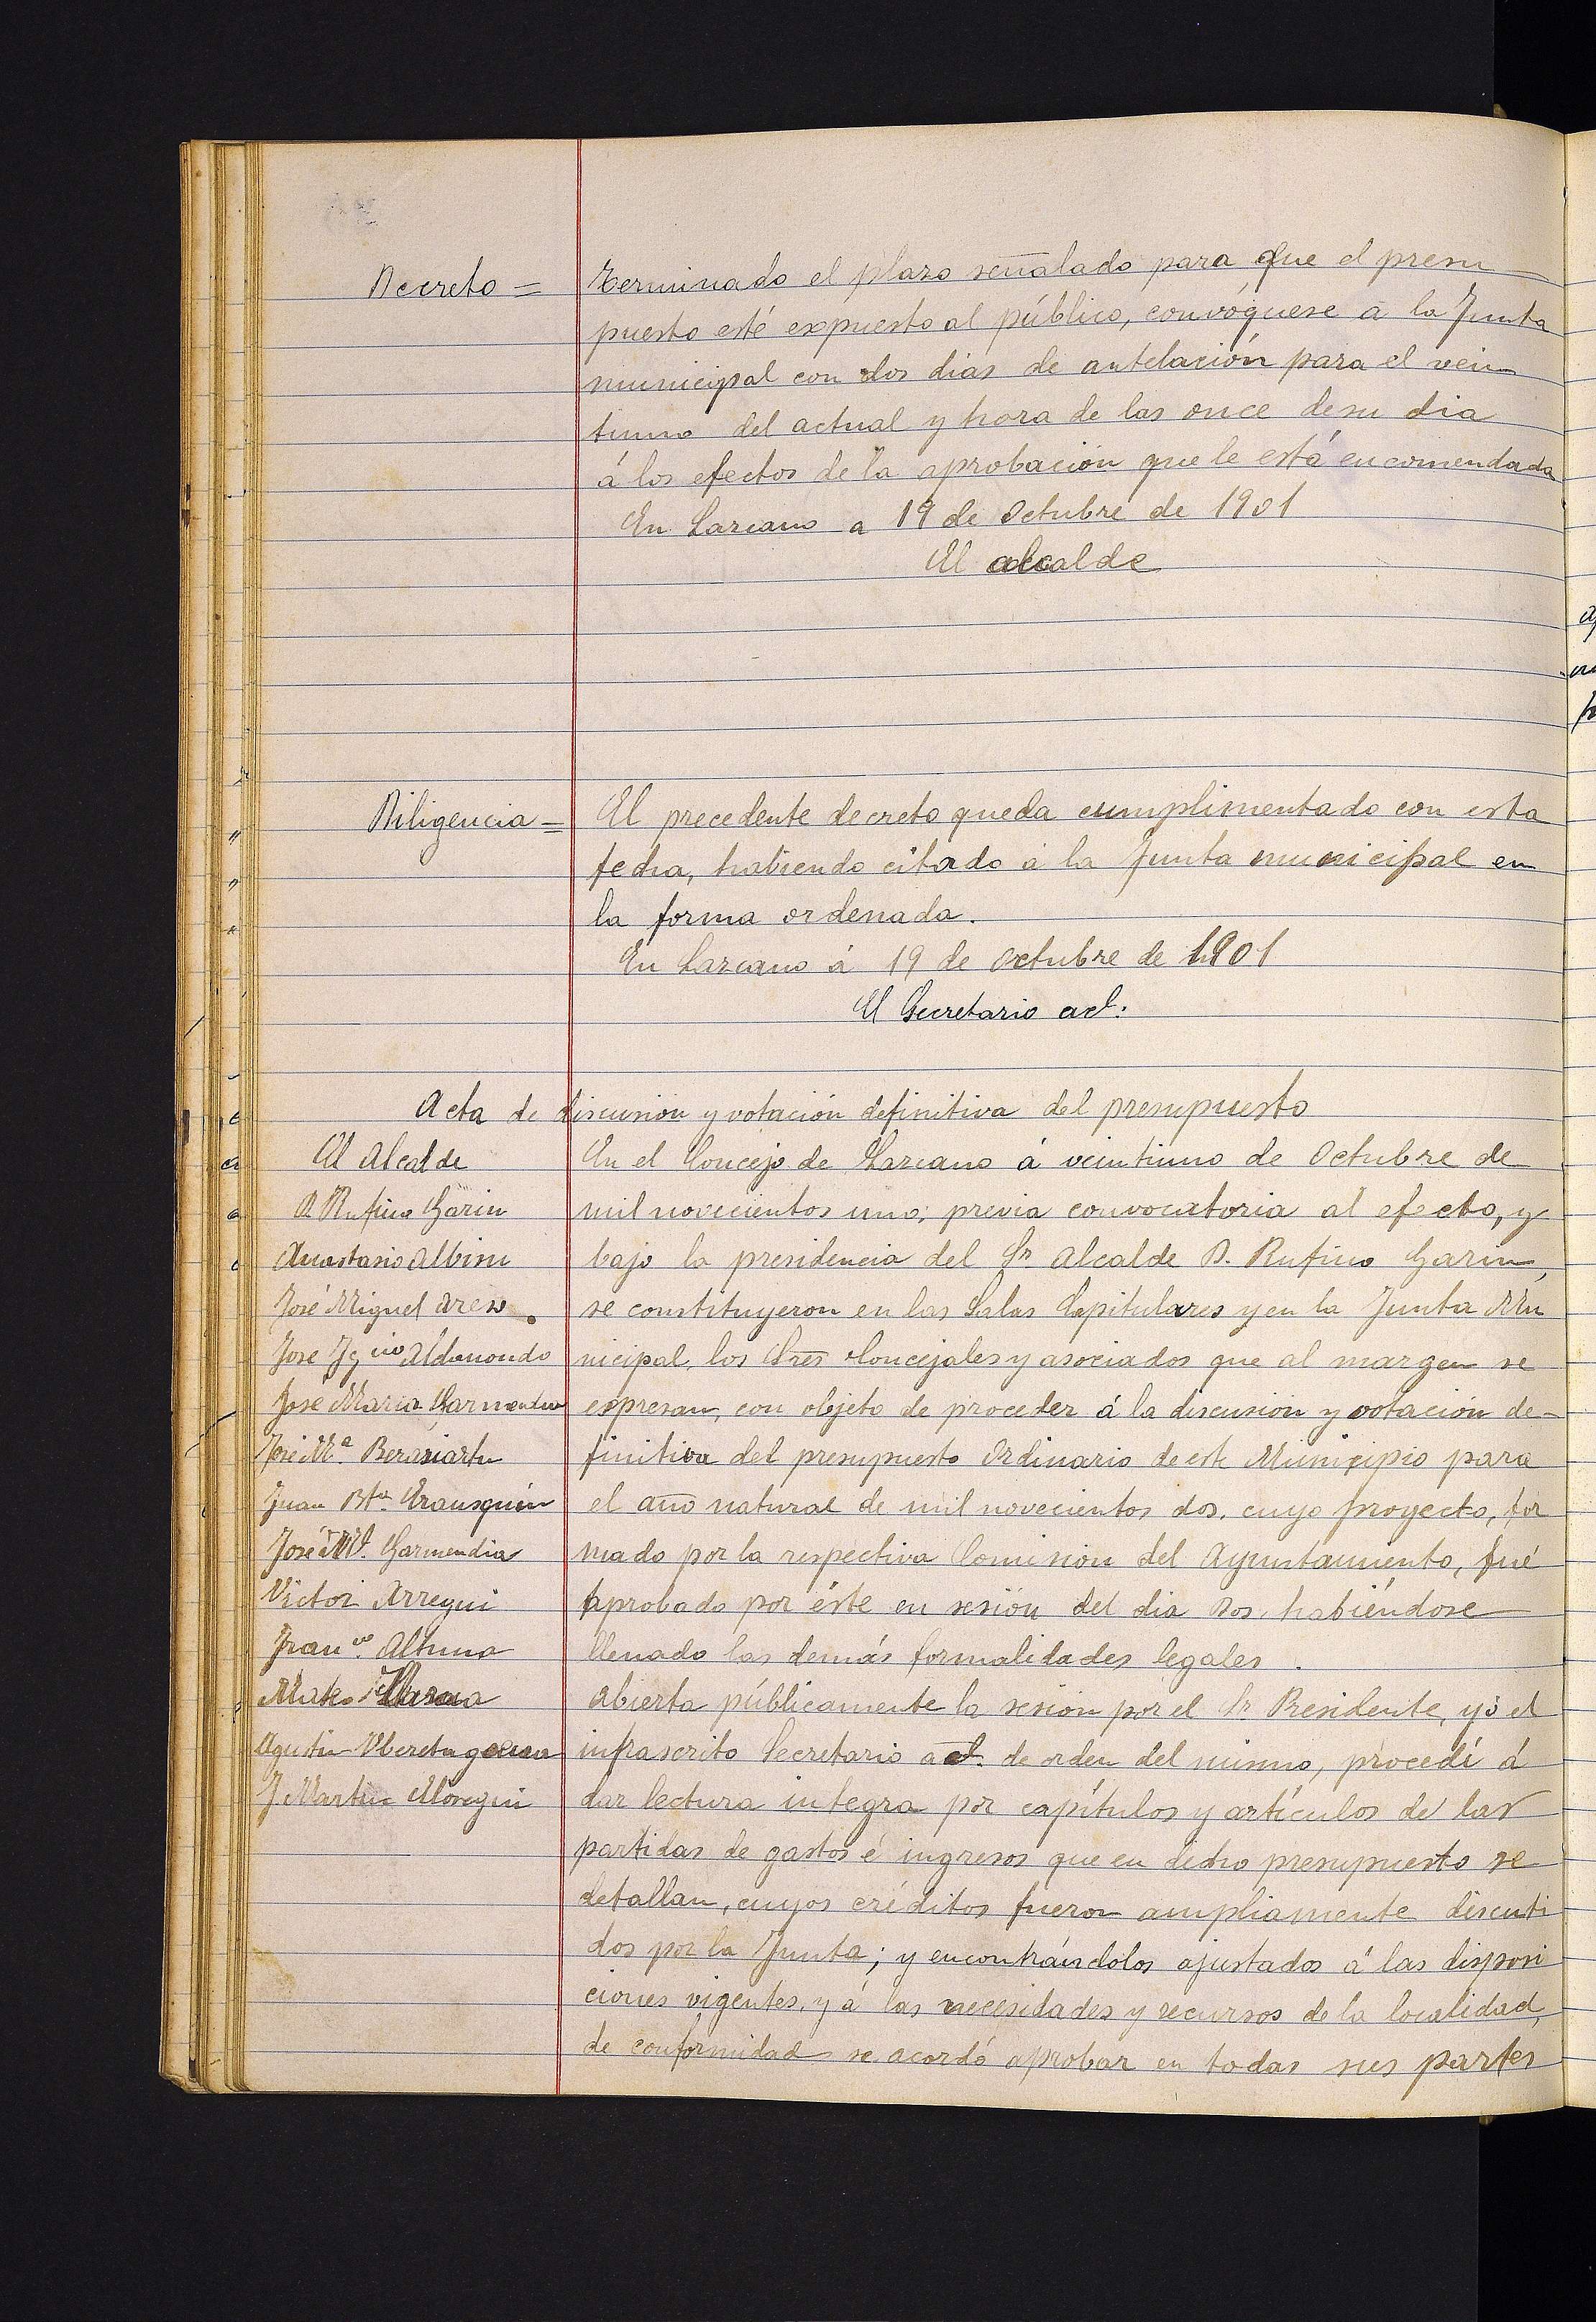 Decreto =
Terminado el plazo señalado para que el presu
puesto esté expuesto al público, convóquese á la Junta
municipal con dos dias de antelación para el vein
tiuno del actual y hora de las once de su dia
á los efectos de la aprobación que le está encomendada
En Lazcano a 19 de Octubre de 1901
El alcalde
Diligencia =
El precedente decreto queda cumplimentado con esta
fecha, habiendo citado á la Junta municipal en
la forma ordenada.
En Lazcano á 19 de Octubre de 1901
El Secretario acl:
Acta de discusión y votación definitiva del presupuesto
El Alcalde
D Rufino Garin
Anastasio Albisu
José Miguel
José Ygcio Aldanondo
José Maria Garmendia
José Mª Berasiartu
Juan Bta Yrausquin
José Garmendia
Victor Arregui
Franco Altuna
Mateo
Agustin
J Martin
En el Concejo de Lazcano á veintiuno de Octubre de
mil novecientos uno; previa convocatoria al efecto, y
bajo la presidencia del Sr Alcalde D. Rufino Garin,
se constituyeron en las Salas Capitulares y en la Junta Mu
nicipal, los Sres Concejales y asociados que al margen se
expresan, con objeto de proceder á la discusión y votación de-
finitiva del presupuesto Ordinario de este Municipio para
el año natural de mil novecientos dos, cuyo proyecto, for
mado por la respectiva Comisión del Ayuntamiento, fué
aprobado por éste en sesión del dia dos, habiéndose
llenado las demás formalidades legales.
Abierta públicamente la sesión por el Sr Presidente, yó el
infrascrito Secretario acl. de orden del mismo, procedí á
dar lectura integra por capítulos y artículos de las
partidas de gastos é ingresos que en dicho presupuesto se
detallan, cuyos créditos fueron ampliamente discuti
dos por la Junta; y encontrándolos ajustados á las disposi
ciones vigentes, y á las necesidades y recursos de la localidad,
de conformidad se acordó aprobar en todas sus partes